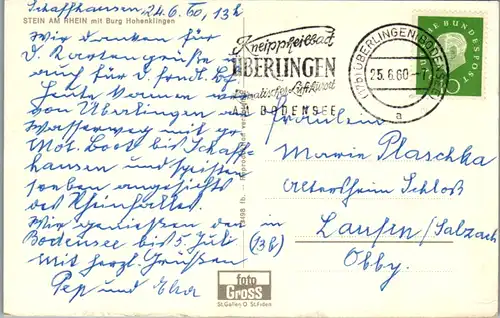 Schaffhausen 24.6.60, 13h
STEIN AM RHEIN mit Burg Hohenklingen
Wir danken für
d. Kartengrüße
auch für d. frndl. bf.
Heute kamen wir
von Überlingen a
Wasserweg mit gr.
Mot. Boot bis Schaff-
hausen und speisten
soeben angesichts
des Rheinfalles.
Wir genießen den
Bodensee bis 5. Juli
Mit herzl. Grüßen
Pep und
Kneippheilbad
ÜBERLINGEN
Klimatischer Luftkurort
AM BODENSEE
(17b) ÜBERLINGEN (BODENSEE)
25.6.60-7
a
DEUTSCHE BUNDESPOST
10
Fräulein
Plaschka
Altersheim Schloß
Laufen/Salzach
in
(13b)
Obby.
foto
Gross
St.Gallen O St.Fiden